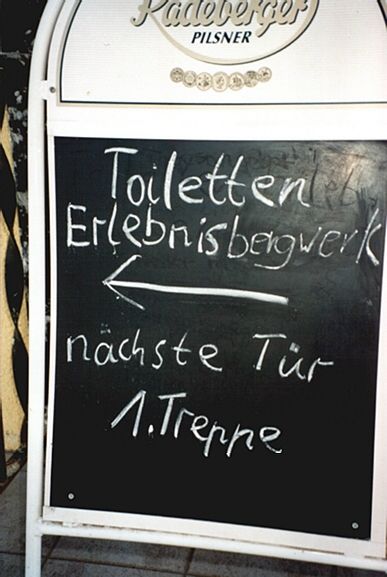 Radeberger
PILSNER
Toiletten
Erlebnisbergwerk
nächste Tür
1. Treppe